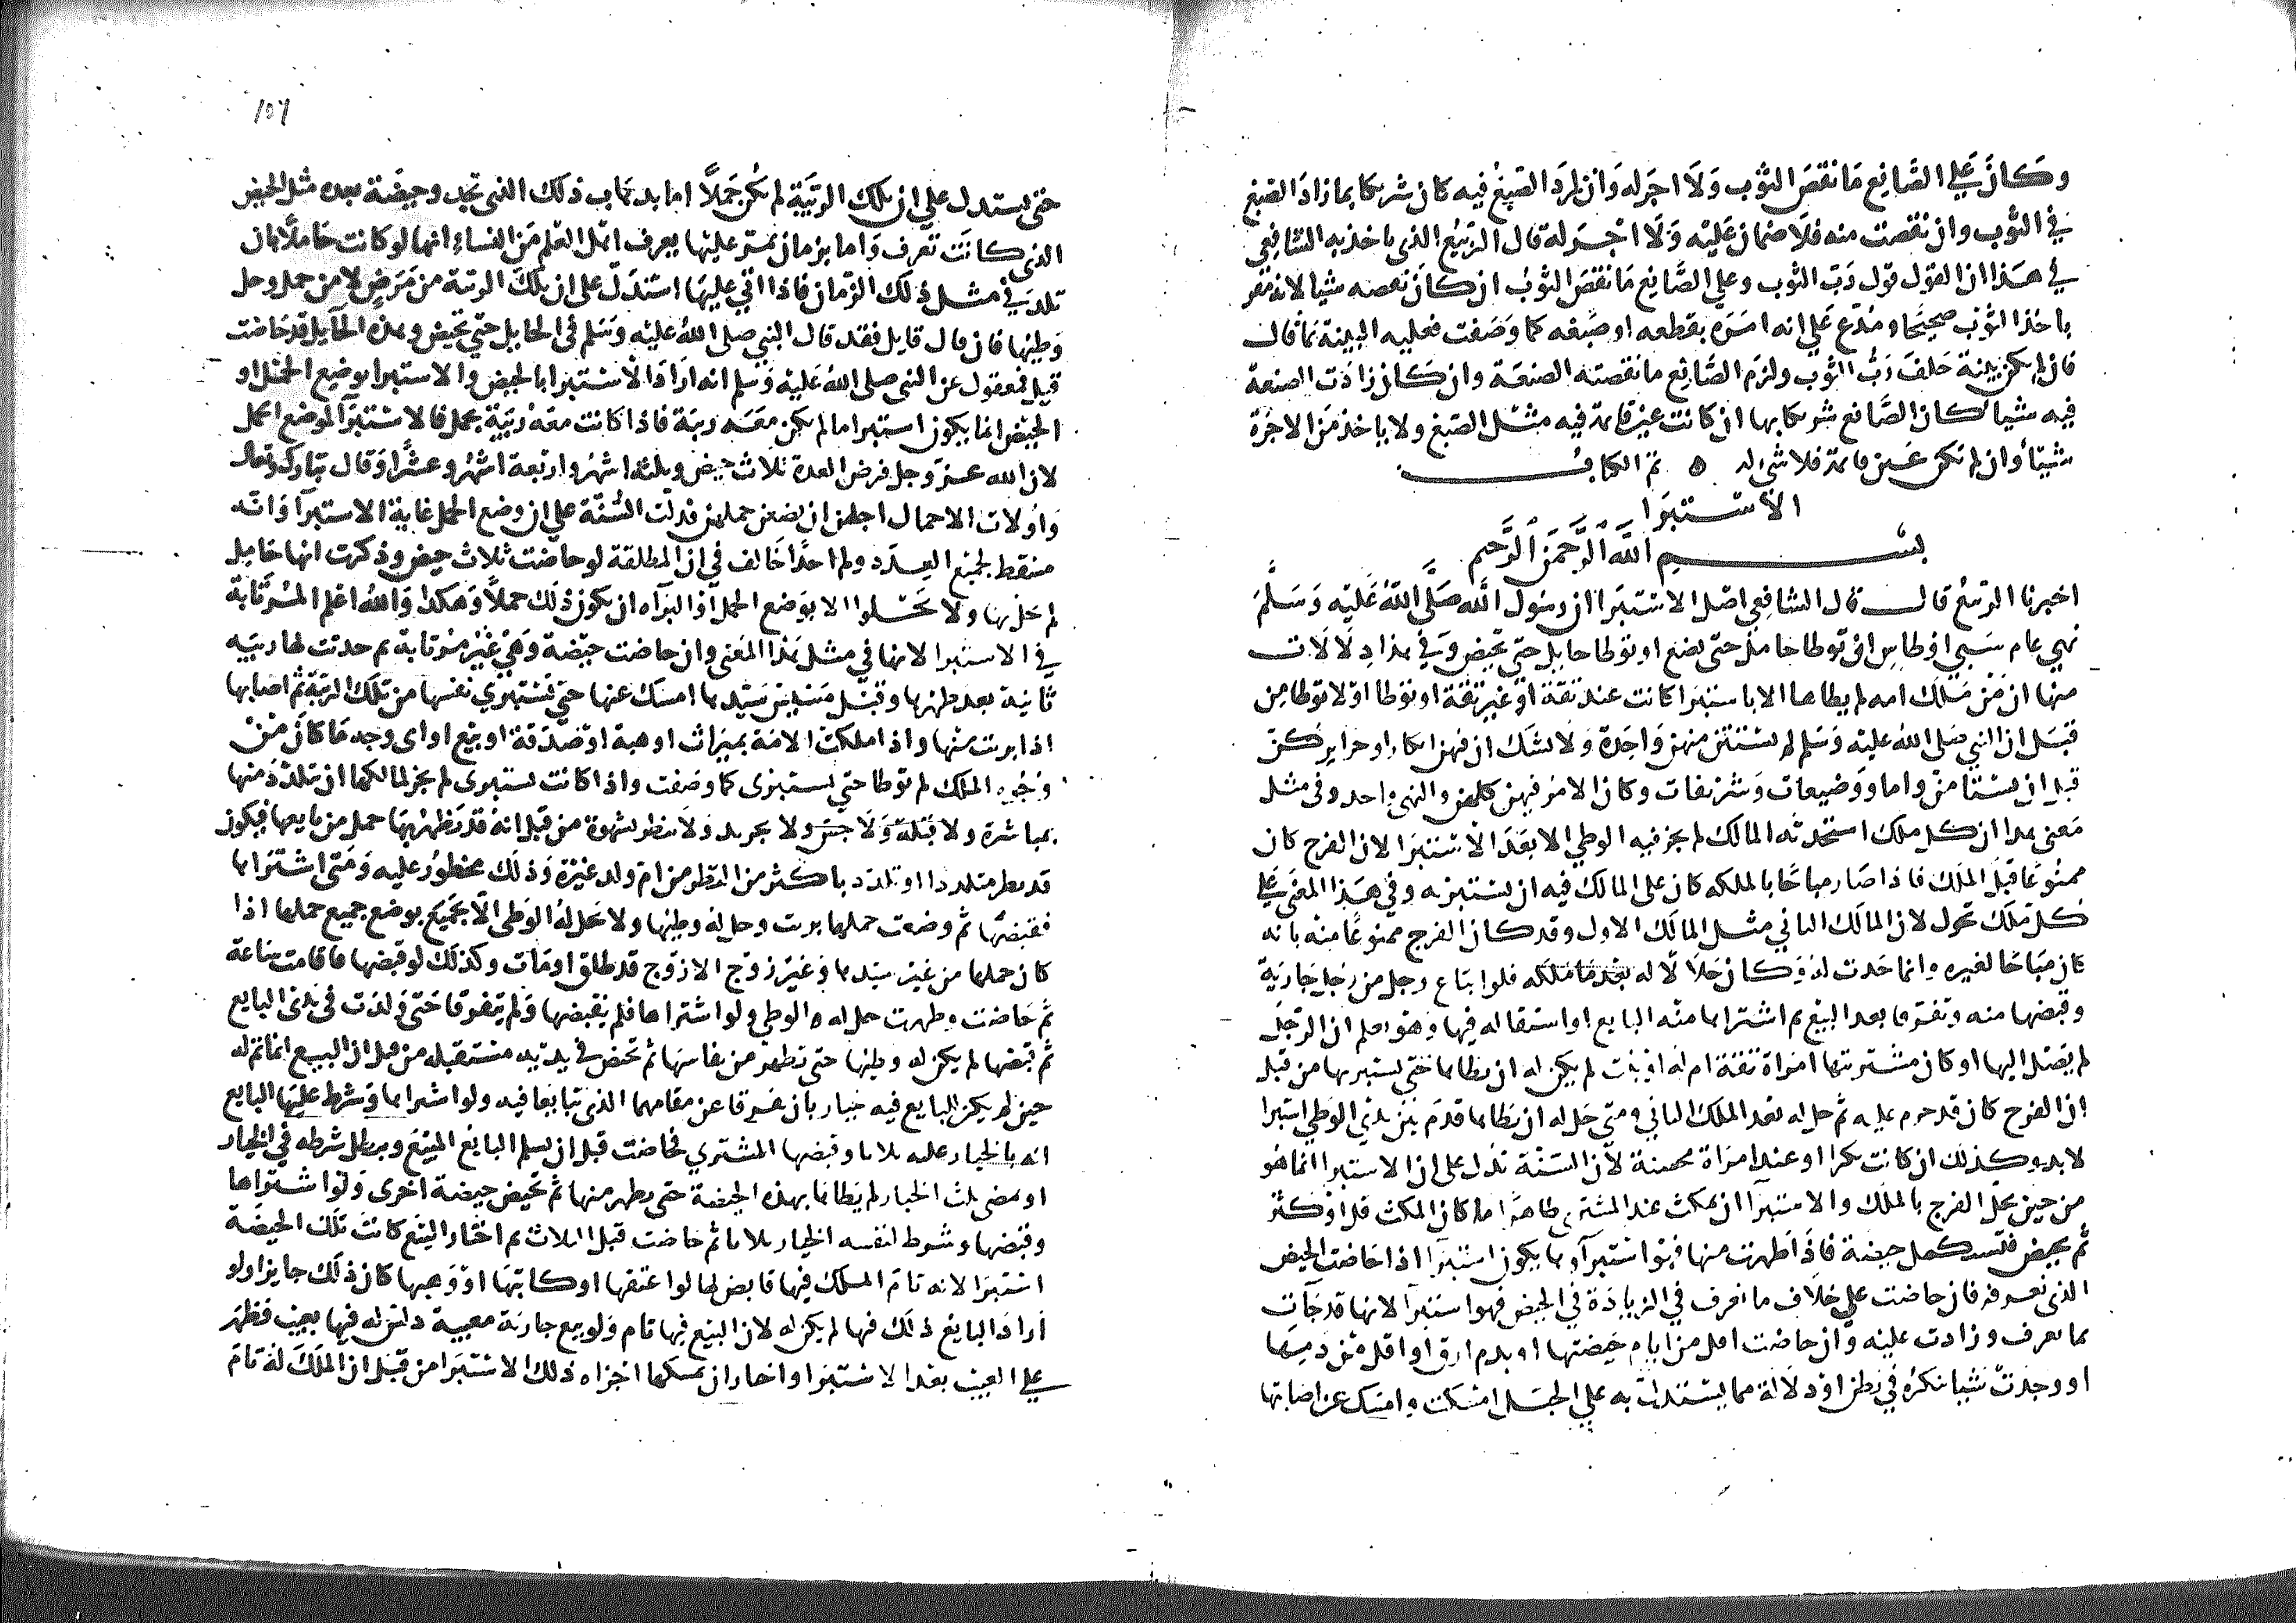 وكان علي الصانع ما نقص الثوب ولا اجر له وان لم يرد الصبغ فيه كان شريكا بما زاد الصبغ
في الثوب وان نقصت منه فلا ضمان عليه ولا اجر له قال الربيع الذي ياخذ به الشافعي
في هذا ان القول قول رب الثوب وعلي الصانع ما نقص الثوب ان كان نقصه شيا لانه مقر
باخذ الثوب صحيحا ومدع علي انه امره بقطعه او صبغه كما وصفت فعليه البينة بما قال
فان لم يكن بينة حلف رب الثوب ولزم الصانع ما نقصته الصنعة وان كان زادت الصنعة
فيه شيا كان الصانع شريكا بها ان كانت عين قائمة فيه مثل الصبغ ولا ياخذ من الاجرة
شيئا وان لم تكن عين قائمة فلا شي له ه تم الكتاب
الاستبرا
بسم الله الرحمن الرحيم
اخبرنا الربيع قال قال الشافعي اصل الاستبرا ان رسول الله صلي الله عليه وسلم
نهي عام سبي اوطاس ان توطا حامل حتي تضع او توطا حايل حتي تحيض وفي هذا دلالات
منها ان من ملك امه لم يطاها الا باستبرا كانت عند ثقة او غير ثقة او توطا او لا توطا من
قبل ان النبي صلي الله عليه وسلم لم يستثن منهن واحدة ولا نشك ان فيهن ابكارا وحراير كن
قبل ان يستامن واما ووضيعات وشريفات وكان الامر فيهن كلهن والنهي واحد وفي مثل
معني هذا ان كل ملك استحدثه المالك لم يجز فيه الوطي الا بعد الاستبرا لان الفرج كان
ممنوعا قبل الملك فاذا صار مباحا بالملكه كان علي المالك فيه ان يستبريه وفي هذا المعني علي
كل ملك تحول لان المالك الثاني مثل المالك الاول وقد كان الفرج ممنوعا منه بانه
كان مباحا لغيره وانما حدث له وكان حلالا له بعد ما ملكه فلو ابتاع رجل من رجل جارية
وقبضها منه وتفرقا بعد البيع ثم اشتراها منه البايع او استقاله فيها وهو يعلم ان الرجل
لم يصل اليها او كان مشتريها امراة ثقة ام له او بنت لم يكن له ان يطاها حتي يستبريها من قبل
ان الفرج كان قد حرم عليه ثم حل له بعد الملك الثاني ومتي حل له ان يطاها قدم بين يدي الوطي استبرا
لا بد وكذلك ان كانت بكرا او عند امراة محصنة لان السنة تدل علي ان الاستبرا انما هو
من حين يحل الفرج بالملك والاستبرا ان يمكث عند المشتري طاهرا ما كان المكث قل او كثر
ثم يحيض فتستكمل حيضة فاذا طهرت منها فهو استبرا وما يكون استبرا اذا حاضت الحيض
الذي تعرفه فان حاضت علي خلاف ما تعرف في الزيادة في الحيض فهو استبرا لانها قد جات
بما تعرف وزادت عليه وان حاضت اقل من ايام حيضتها او بدم ارق او اقل من دمها
او وجدت شيا تنكره في بطن او دلالة مما يستدل به علي الحبل امسكت وامسك عن اصابتها
حتي يستدل علي ان تلك الريبة لم تكن حملا اما بذهاب ذلك الذي تجد وحيضة بعده مثل الحيض
الذي كانت تعرف واما بزمان يمر عليها يعرف اهل العلم من النساء انها لو كانت حاملا بان
تلد في مثل ذلك الزمان فاذا اتي عليها استدل علي ان تلك الريبة من مرض لا من حمل وحل
وطيها فان قال قايل فقد قال النبي صلي الله عليه وسلم في الحايل حتي تحيض وهذه الحايل قد حاضت
قيل فمعقول عن النبي صلي الله عليه وسلم انه اراد الاستبرا بالحيض والاستبرا بوضع الحمل او
الحيض انما يكون استبرا ما لم يكن معه ريبة فاذا كانت معه ريبة بحمل فالاستبرا الموضع الحمل
لان الله عز وجل فرض العدة ثلاث حيض وثلثة اشهر واربعة اشهر وعشرا وقال تبارك وتعالي
واولات الاحمال اجلهن ان يضعن حملهن فدلت السنة علي ان وضع الحمل غاية الاستبرا وانه
مسقط لجميع العدد ولم احدا خالف في ان المطلقة لو حاضت ثلاث حيض وذكرت انها حامل
لم تحل بها ولا تحل الا بوضع الحمل او البراه ان يكون ذلك حملا وهكذا والله اعلم المسترابة
في الاستبرا لانها في مثل هذا المعني وان حاضت حيضة وهي غير مرتابة ثم حدثت لها ريبة
ثانية بعد طهرها وقبل مسيس سيدها امسك عنها حتي تستبري نفسها من تلك الريبة ثم اصابها
اذا برئت منها واذا ملكت الامة بميراث او هبة او صدقة او بيع او اي وجه ما كان من
وجوه الملك لم توطا حتي تستبري كما وصفت واذا كانت تستبري لم يجز لمالكها ان يتلذذ منها
بمباشرة ولا قبلة ولا جس ولا تجريد ولا ينظر بشهوة من قبل انه قد يظهر بها حمل من بايعها فيكون
قد نظر متلذذا او تلذذ باكثر من النظر من ام ولد غيره وذلك محظور عليه ومتي اشتراها
فقبضها ثم وضعت حملها برئت وحل له وطيها ولا تحل له الوطي الا بجميع بوضع جميع حملها اذا
كان حملها من غير سيدها وغير زوج الا زوج قد طلق او مات وكذلك لو قبضها فاقامت ساعة
ثم حاضت وطهرت حل له ه الوطي ولو اشتراها فلم يقبضها ولم يتفرقا حتي ولدت في يدي البايع
ثم قبضها لم يكن له وطيها حتي تطهر من نفاسها ثم تحيض في يديه حيضة مستقبلة من قبل ان البيع انما تم له
حين لم يكن للبايع فيه خيار بان تفرقا عن مقامهما الذي تبايعا فيه ولو اشتراها وشرط عليها البايع
انه بالخيار عليه ثلاثا وقبضها المشتري فحاضت قبل ان يسلم البايع المبيع ويبطل شرطه في الخيار
او تمضي ثلث الخيار لم يطاها بهذه الحيضة حتي تطهر منها ثم تحيض حيضة اخري ولو اشتراها
وقبضها وشرط لنفسه الخيار ثلاثا ثم حاضت قبل الثلاث ثم اختار البيع كانت تلك الحيضة
استبرا لانه تام الملك فيها قابض لها لو اعتقها او كاتبها او وهبها كان ذلك جايزا ولو
اراد البايع ذلك فيها لم يكن له لان البيع فيها تام ولو بيع جارية معيبة دلس له فيها بعيب فظهر
علي العيب بعد الاستبرا واختار ان يمسكها اجزاه ذلك الاستبرا من قبل ان الملك له تام